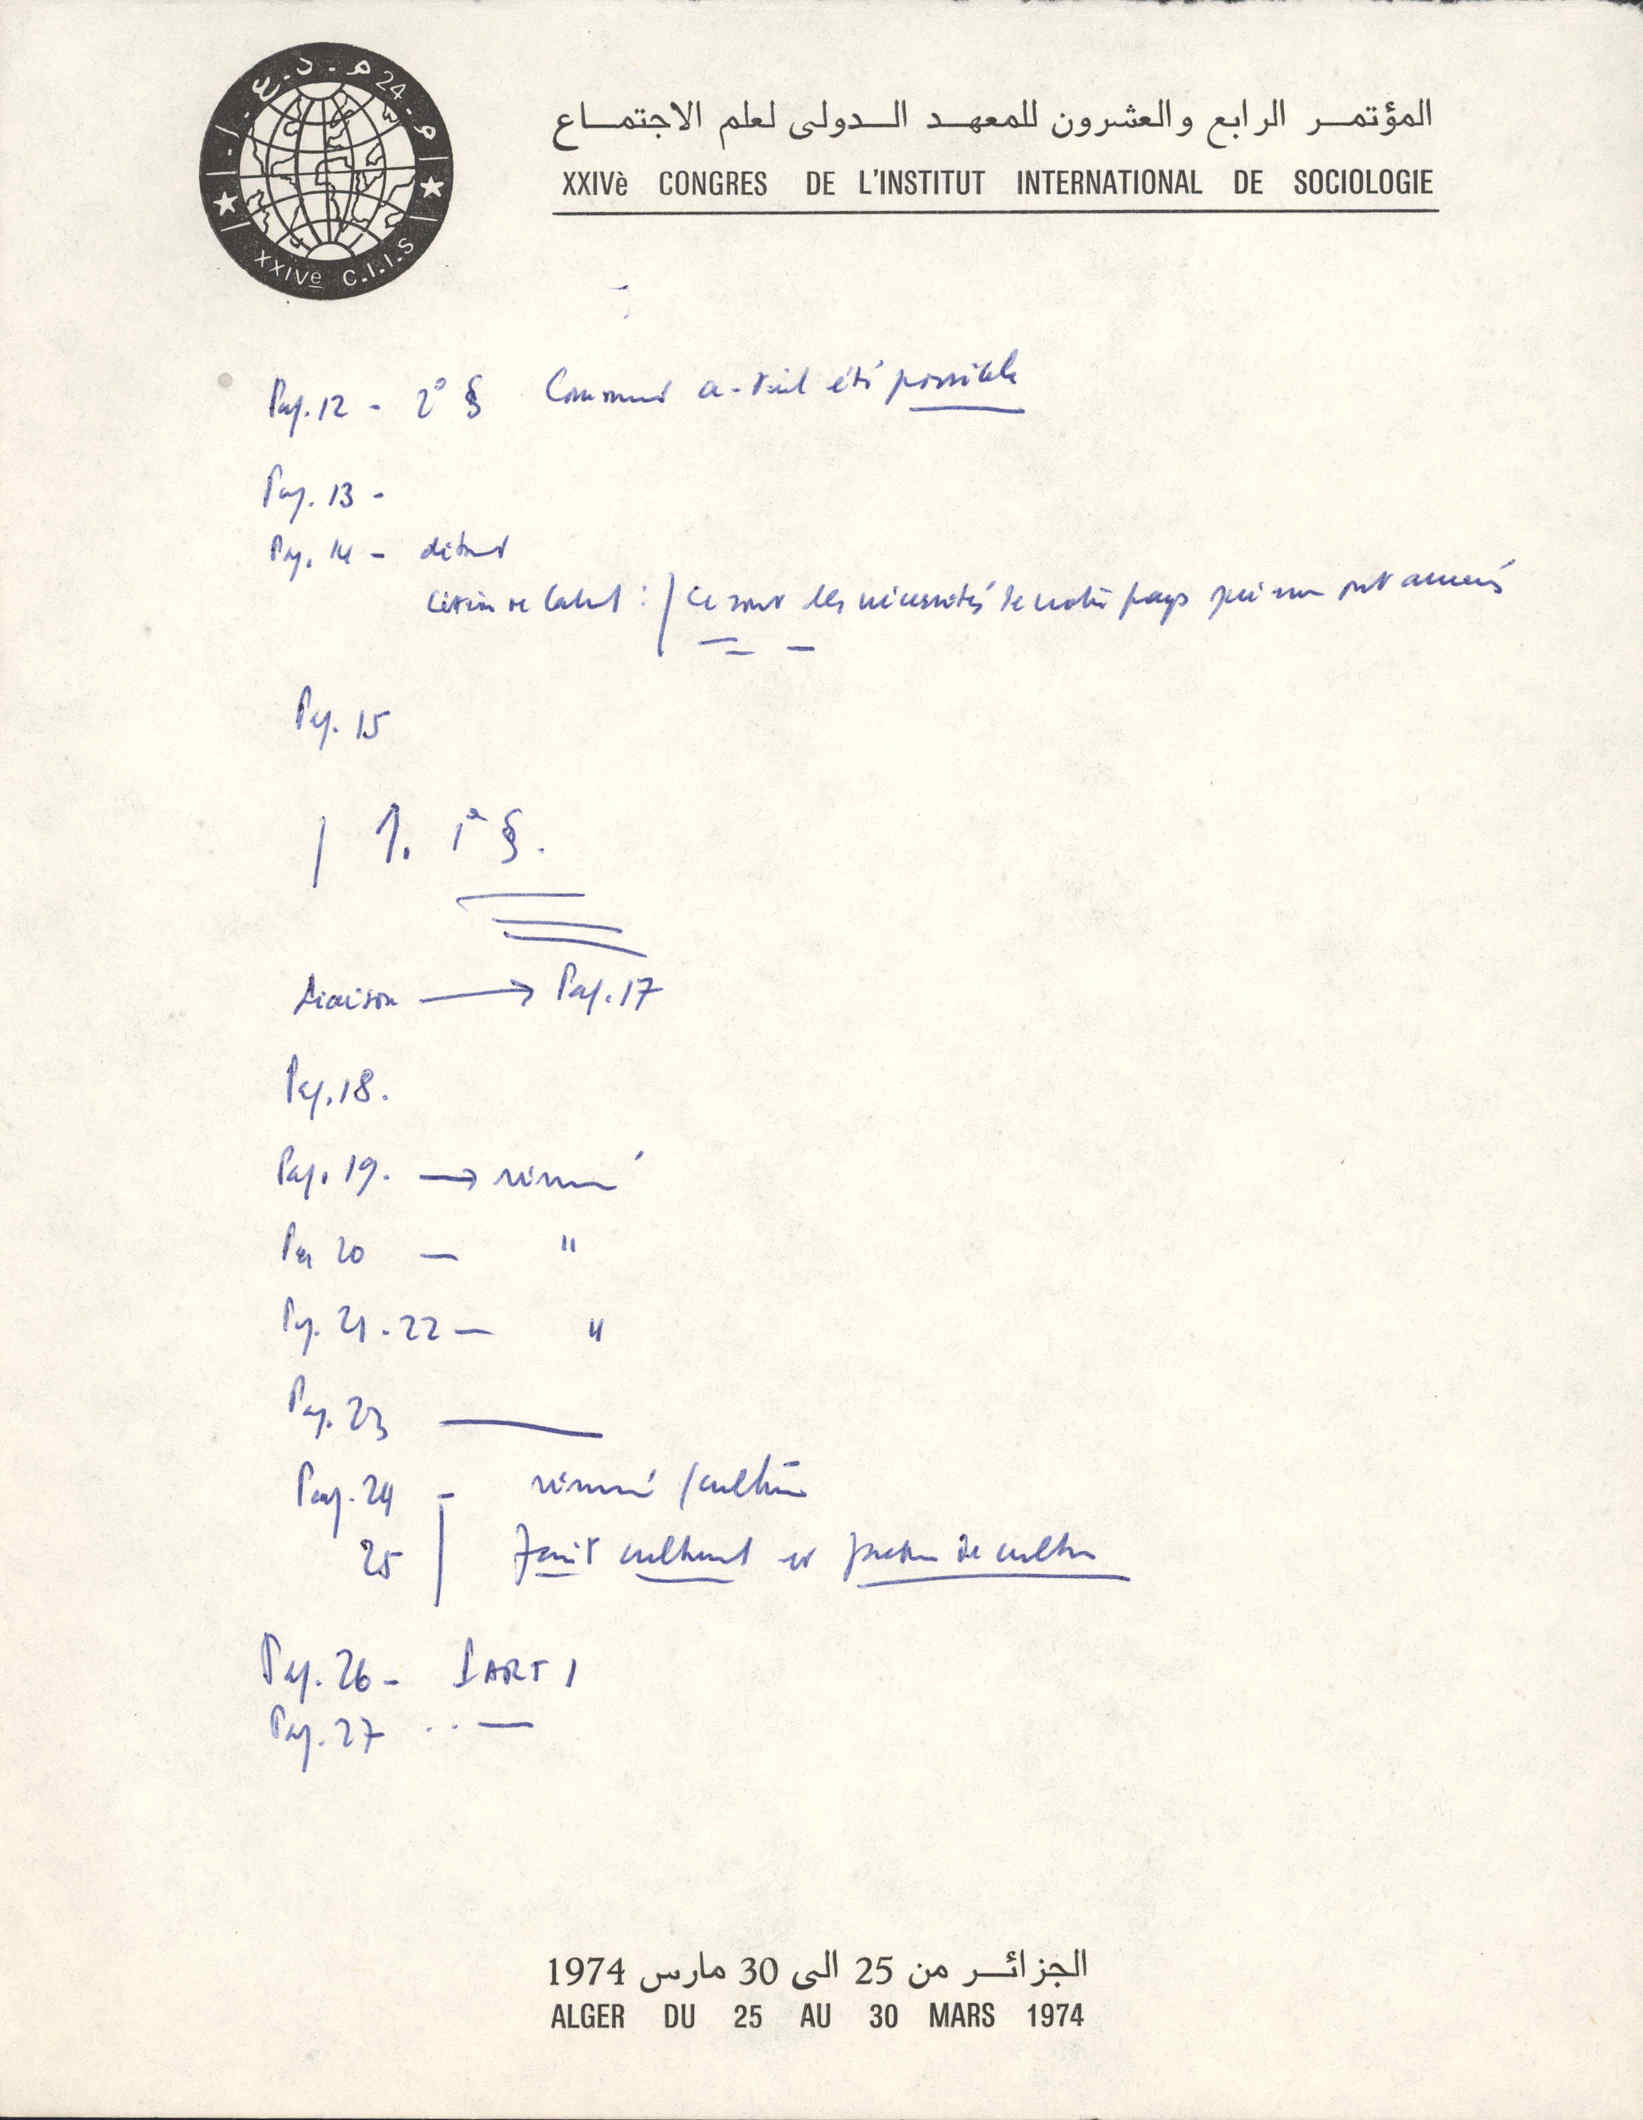 م.د.ع.ا. م-24
XXIVe C.I.I.S
المؤتمر الرابع والعشرون للمعهد الدولى لعلم الاجتماع
XXIVè CONGRES DE L'INSTITUT INTERNATIONAL DE SOCIOLOGIE
Pag. 12 - 2° § Comment a-t-il été possible
Pag. 13 -
Pag. 14 - début
: / Ce sont les nécessités de notre pays qui nous ont amenés
Pag. 15
/ 1. 1° §.
Liaison → Pag. 17
Pag. 18.
Pag. 19. → résumé
Pag 20 — "
Pag. 21 - 22 — "
Pag. 23 —
Pag. 24 - résumé / culture
25 | Fait culturel et de culture
Pag. 26 - PART 1
Pag. 27 .. —
الجزائر من 25 الى 30 مارس 1974
ALGER DU 25 AU 30 MARS 1974